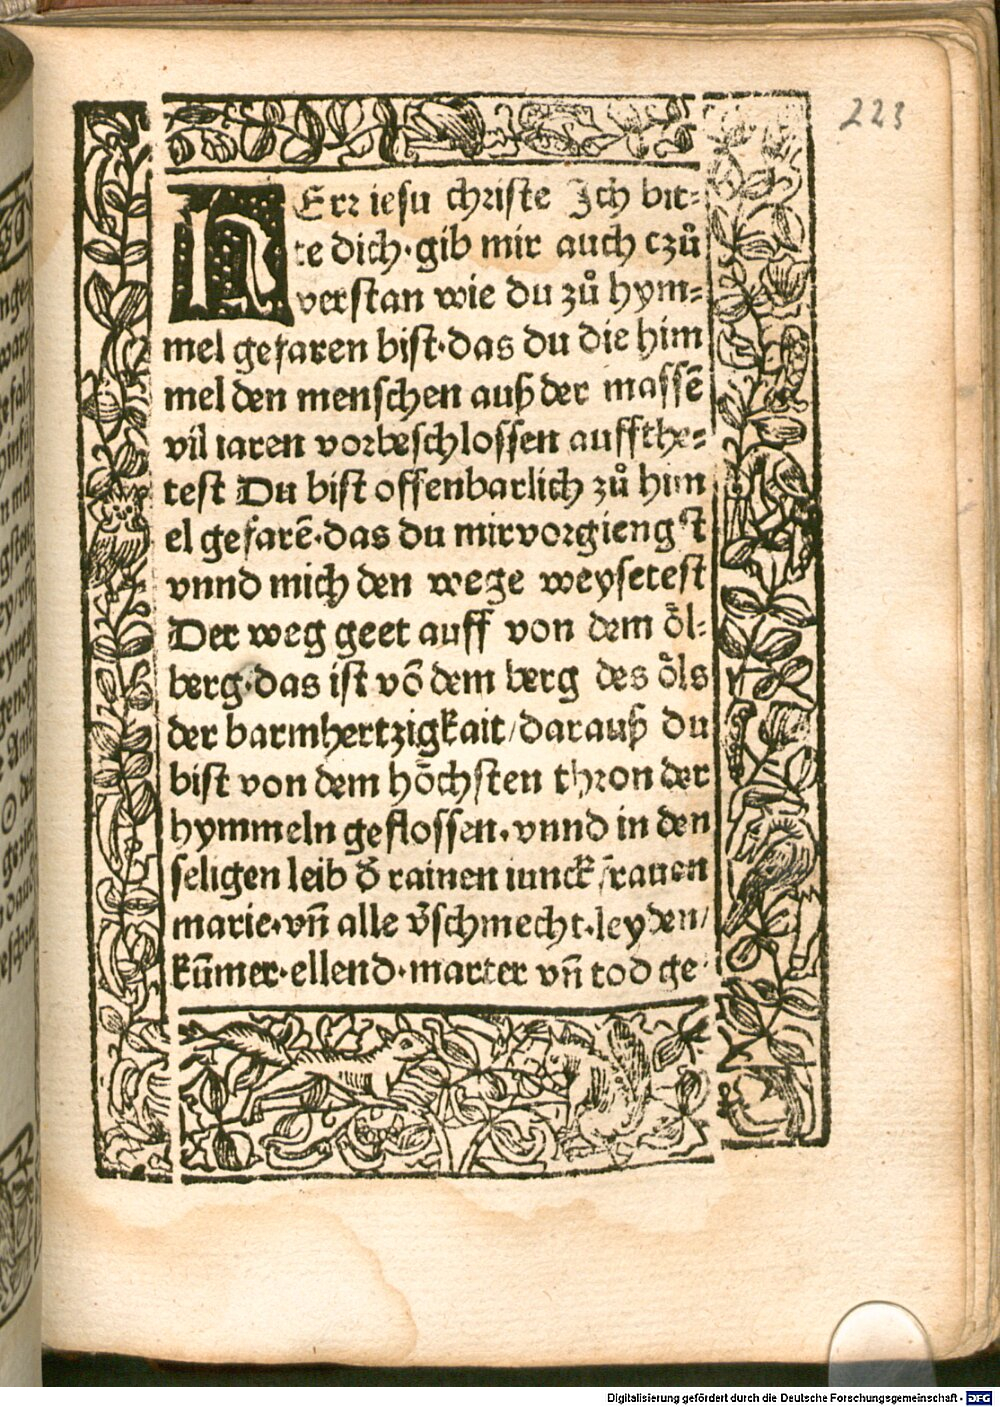 223
HErr iesu christe Ich bit⸗
te dich·gib mir auch czů
verstan wie du zů hym⸗
mel gefaren bist·das du die him
mel den menschen auß der massē
vil iaren vorbeschlossen auffthe⸗
test Du bist offenbarlich zů him
el gefarē·das du mir vorgiengst
vnnd mich den wege weysetest
Der weg geet auff von dem öl⸗
berg·das ist vō dem berg des öls
der barmhertzigkait/darauß du
bist von dem höchsten thron der
hymmeln geflossen·vnnd in den
seligen leib d̄ rainen iunckfrauen
marie·vn̄ alle v̄schmecht·leyden/
kūmer·ellend·marter vn̄ tod ge⸗
Digitalisierung gefördert durch die Deutsche Forschungsgemeinschaft - DFG